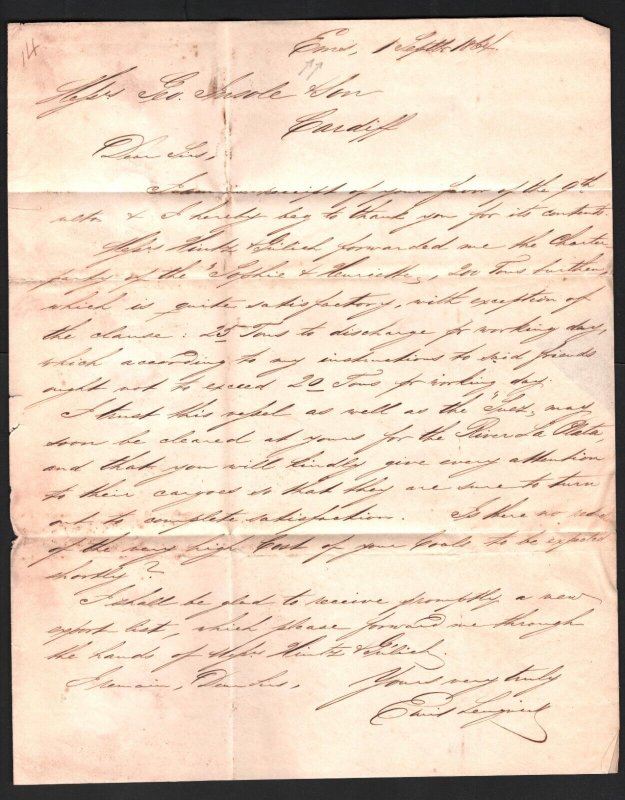 14
Ems, 1 Septbr 1864.
Messrs Geo. Insole & Son
Cardiff
Dear Sirs,
I am in receipt of your favor of the 9th
ulto & I hereby beg to thank you for its contents.
Messrs Hintz & forwarded me the Charter
party of the "Sophie & Henriette", 200 Tons burthen,
which is quite satisfactory, with exception of
the clause: 25 Tons to discharge pr working day,
which according to my instructions to said friends
ought not to exceed 20 Tons, pr working day.
I trust this vessel as well as the "Suez", may
soon be cleared at yours for the River La Plata,
and that you will kindly give every attention
to their cargoes so that they are sure to turn
out to complete satisfaction. Is there no
of the very high Cost of your Coals to be expected
shortly?
I shall be glad to receive promptly a new
export list, which please forward me through
the hands of Messrs Hintz &
I remain, Dear Sirs, Yours very truly